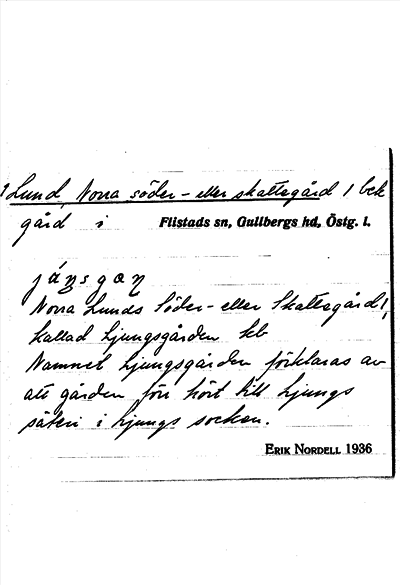 Lund, Norra söder- eller skattegård / bck
gård i Flistads sn, Gullbergs hd, Östg. l.
Norra Lunds Söder- eller Skattegård,
kallad Ljungsgården kb
Namnet Ljungsgården förklaras av
att gården förr hört till Ljungs
säteri i Ljungs socken.
ERIK NORDELL 1936